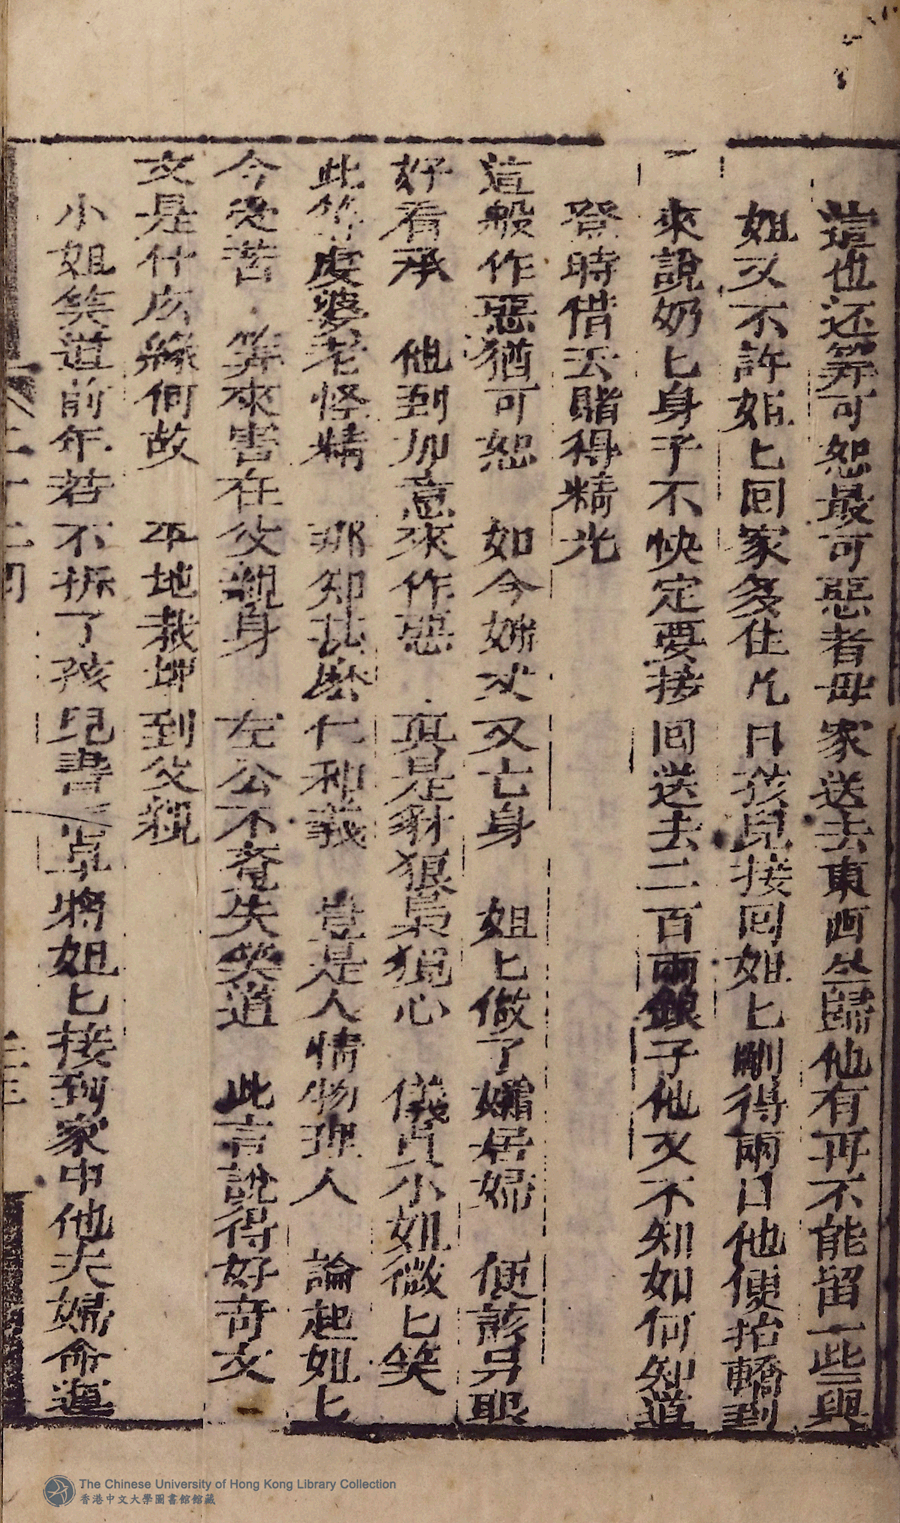 這也还筭可恕最可惡者毋家送去東西仝歸他有再不能留一些與
姐又不許姐匕回家多住凢日孩兒接回姐匕剛得兩日他便抬轎到
來說奶匕身子不快定要接回送去二百兩銀子他又不知如何知道
登時借去賭得精光
這般作惡猶可恕　如今姊丈又亡身　姐匕做了孀居婦　便該另眼
好看承　他到加意來作惡　真是豺狼梟獍心　儀貞小姐微匕笑
此等虔婆老怪精　那知甚麽仁和義　豈是人情物理人　論起姐匕
今受苦　筭來害在父親身　左公不竟失笑道　此言說得好奇文
文是什庅緣何故　平地栽埋到父親
小姐笑道前年若不拆了孩兒書早將姐匕接到家中他夫婦命運
二十二囘
The Chinese University of Hong Kong Library Collection
香港中文大學圖書館館藏